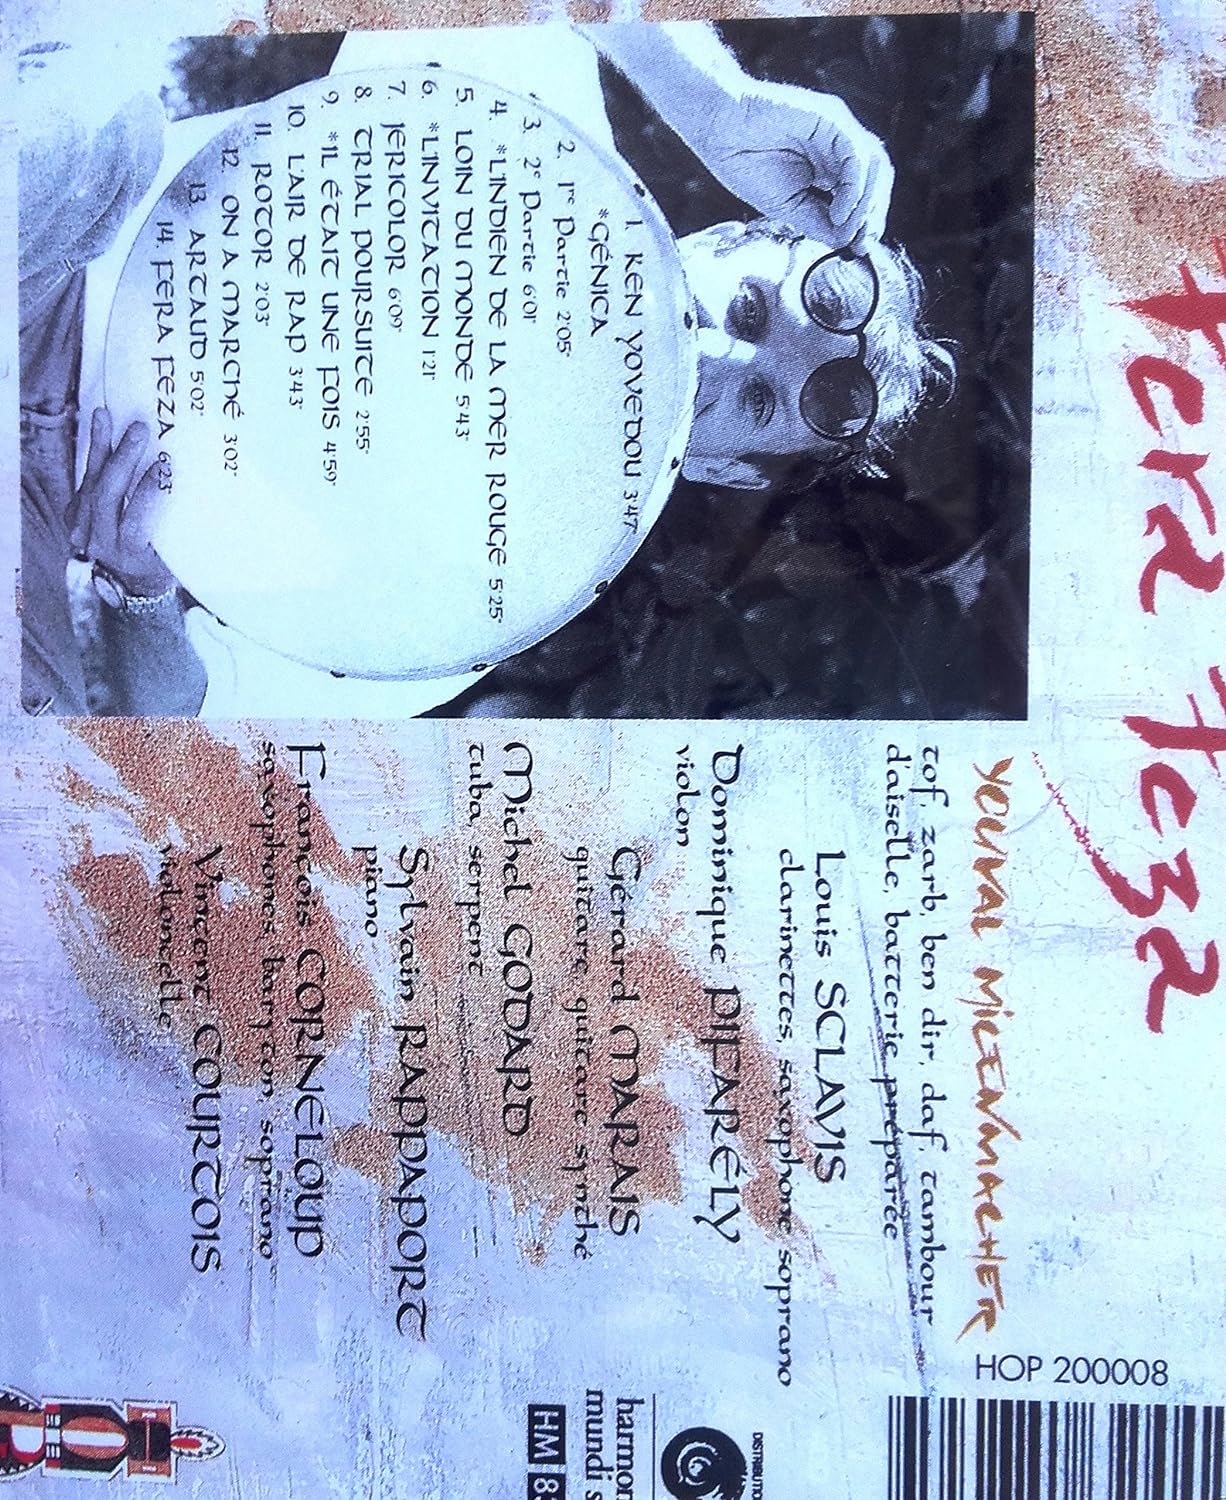 Fera Feza
YOUVAL MICENMACHER
tof, zarb, ben dir, daf, tambour
d'aiselle, batterie préparée
Louis SCLAVIS
clarinettes, saxophone soprano
Dominique PIFARÉLY
violon
Gérard MARAIS
guitare, guitare synthé
Michel GODARD
tuba, serpent
Sylvain RAPPAPORT
piano
François CORNELOUP
saxophones, baryton, soprano
Vincent COURTOIS
violoncelle
1. KEN YOVEDOU 3'47"
*GÉNICA
2. 1re Partie 2'05"
3. 2e Partie 6'01"
4. *L'INDIEN DE LA MER ROUGE 5'25"
5. LOIN DU MONDE 5'43"
6. *L'INVITATION 1'21"
7. JERICOLOR 6'09"
8. TRIAL POURSUITE 2'55"
9. *IL ÉTAIT UNE FOIS 4'59"
10. L'AIR DE RAP 3'43"
11. ROTOR 2'03"
12. ON A MARCHÉ 3'02"
13. ARTAUD 5'02"
14. FERA FEZA 6'23"
HOP 200008
harmon
mundi s
HM 8